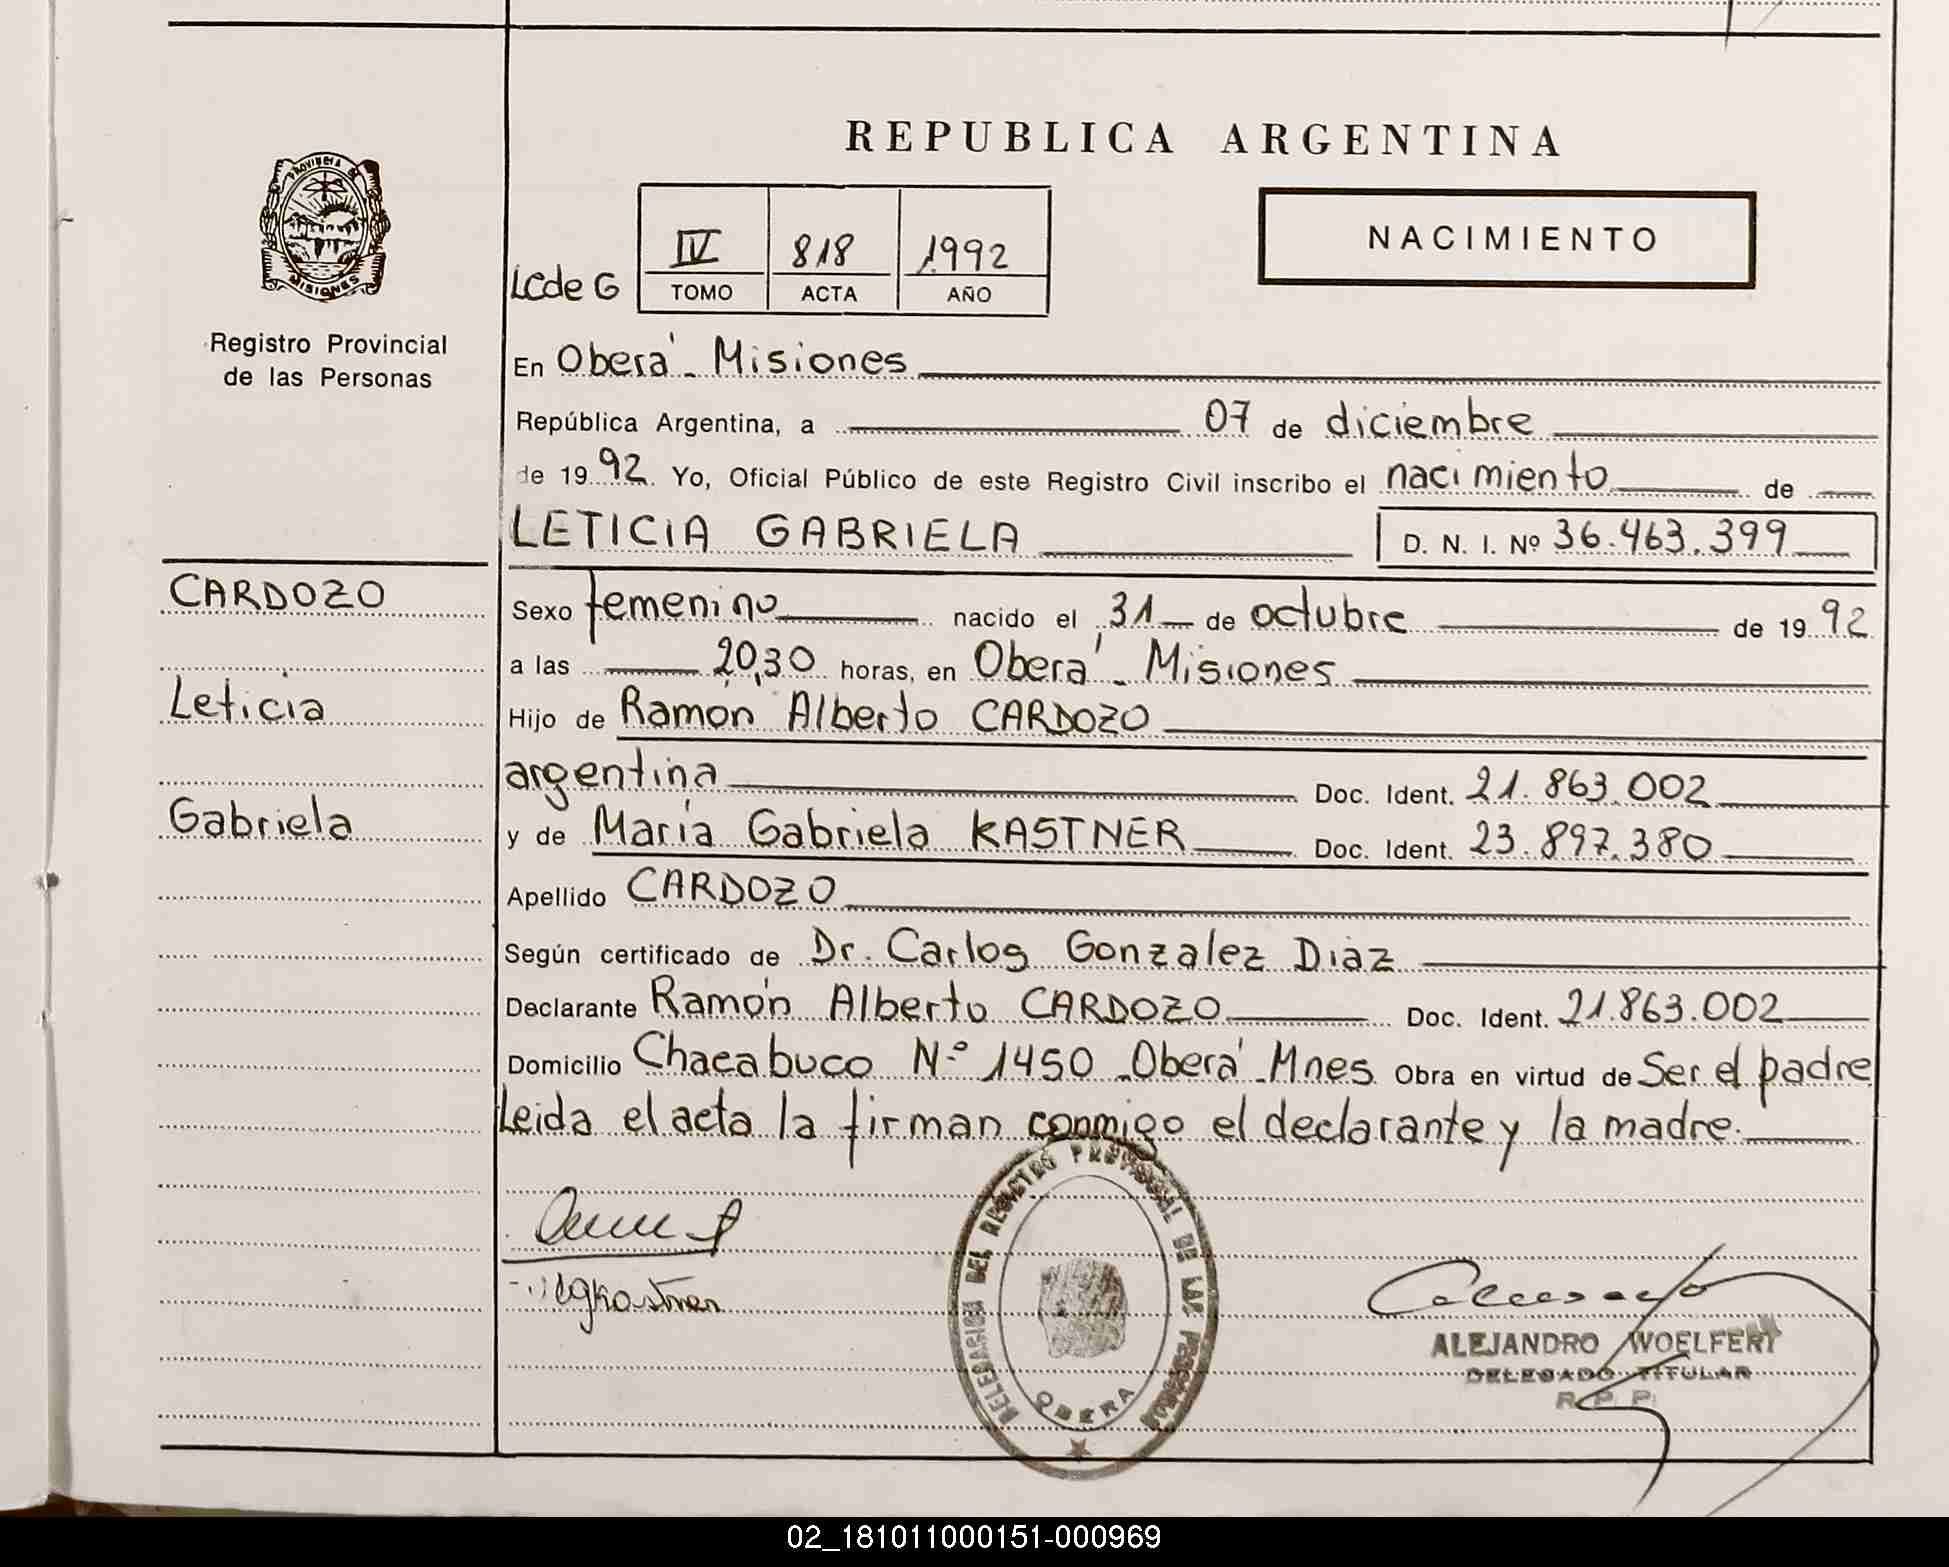 REPUBLICA ARGENTINA
PROVINCIA DE
MISIONES
Registro Provincial
de las Personas
NACIMIENTO
LCde G
IV 818 1992
TOMO ACTA AÑO
En Oberá - Misiones
República Argentina, a 07 de diciembre
de 1992. Yo, Oficial Público de este Registro Civil inscribo el nacimiento de
LETICIA GABRIELA D. N. I. Nº 36.463.399
CARDOZO
Leticia
Gabriela
Sexo femenino nacido el 31 de octubre de 1992
a las 20,30 horas, en Oberá - Misiones
Hijo de Ramón Alberto CARDOZO
argentina Doc. Ident. 21.863.002
y de María Gabriela KASTNER Doc. Ident. 23.897.380
Apellido CARDOZO
Según certificado de Dr. Carlos Gonzalez Diaz
Declarante Ramón Alberto CARDOZO Doc. Ident. 21.863.002
Domicilio Chacabuco N.º 1450 - Oberá - Mnes. Obra en virtud de Ser el padre
Leida el acta la firman conmigo el declarante y la madre.
DELEGACION DEL REGISTRO PROVINCIAL DE LAS PERSONAS
OBERA
ALEJANDRO WOELFERT
DELEGADO TITULAR
R. P. P.
02_181011000151-000969